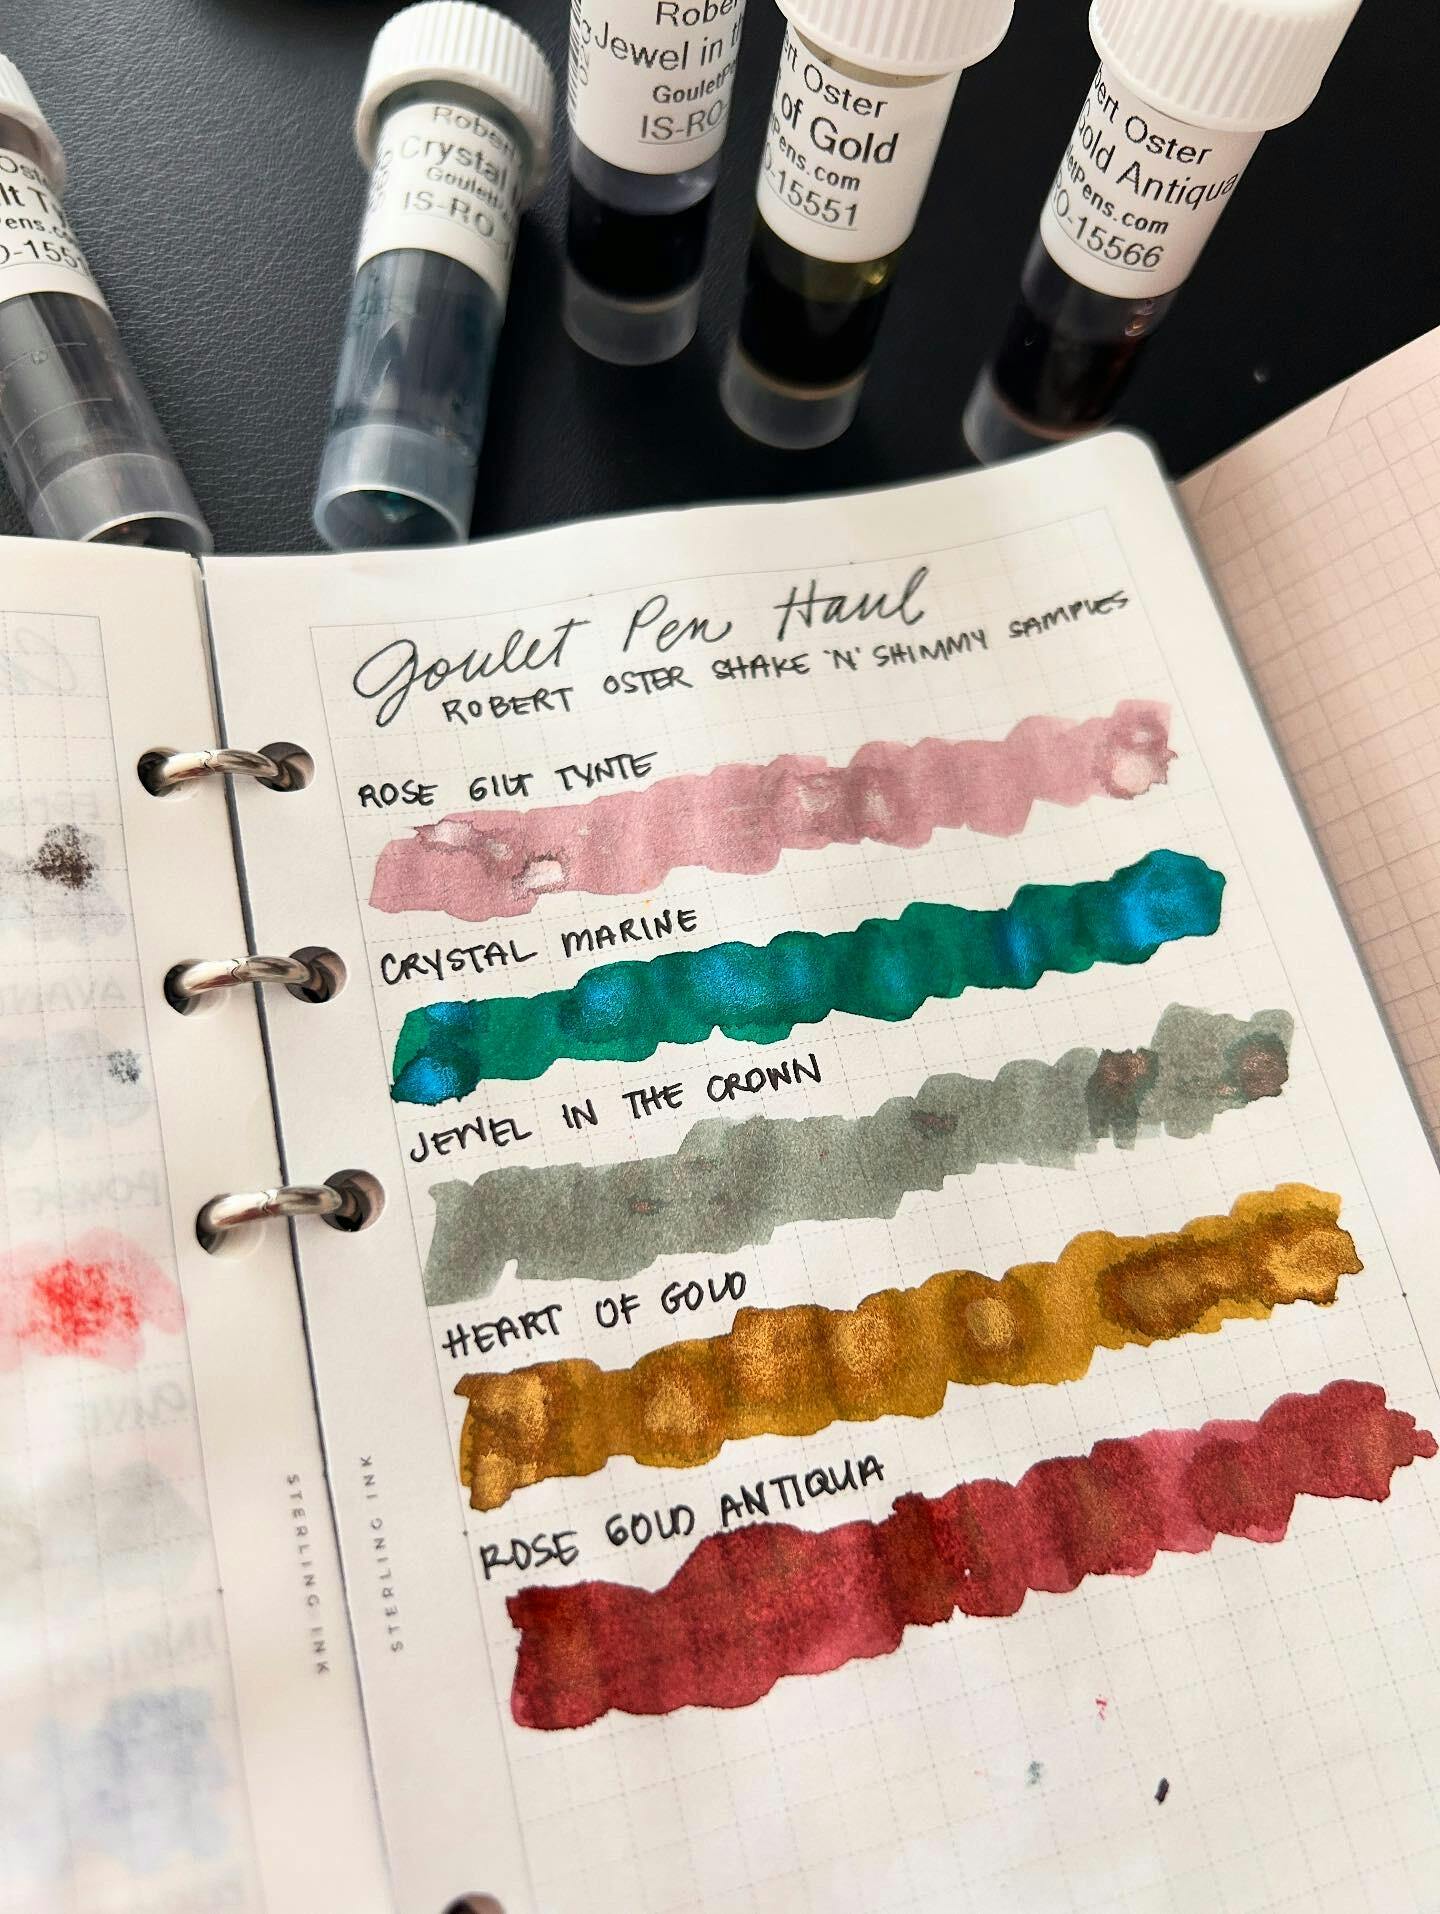 Rober
Crystal
GouletP
IS-RO-
Rober
Jewel in t
GouletPe
IS-RO-
rt Oster
of Gold
Pens.com
O-15551
bert Oster
Gold Antiqua
letPens.com
RO-15566
Oste
lt Ty
Pens.co
O-1551
Goulet Pen Haul
ROBERT OSTER SHAKE 'N' SHIMMY SAMPLES
ROSE GILT TYNTE
CRYSTAL MARINE
JEWEL IN THE CROWN
HEART OF GOLD
ROSE GOLD ANTIQUA
STERLING INK
STERLING INK